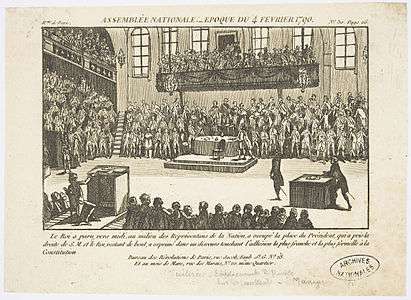 ASSEMBLÉE NATIONALE. EPOQUE DU 4 FEVRIER 1790.
Le Roi a paru vers midi, au milieu des Représentans de la Nation, a occupé la place du Président, qui a pris la
droite de S. M. et le Roi restant de bout, a exprimé dans un discours touchant l'adhésion la plus franche et la plus formelle à la
Constitution
Bureau des Révolutions de Paris, rue Jacob, Faub. St. G. No. 28.
Et au mois de Mars, rue des Marais, No. 20 même Quartier.
ARCHIVES
NATIONALES